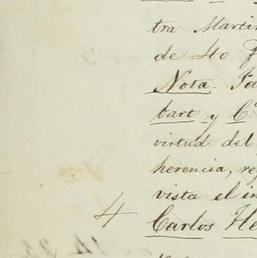 tra Martin
de 40 F
Nota. Fa
bart y C.
virtud del
herencia, re
vista el in
4 Carlos He